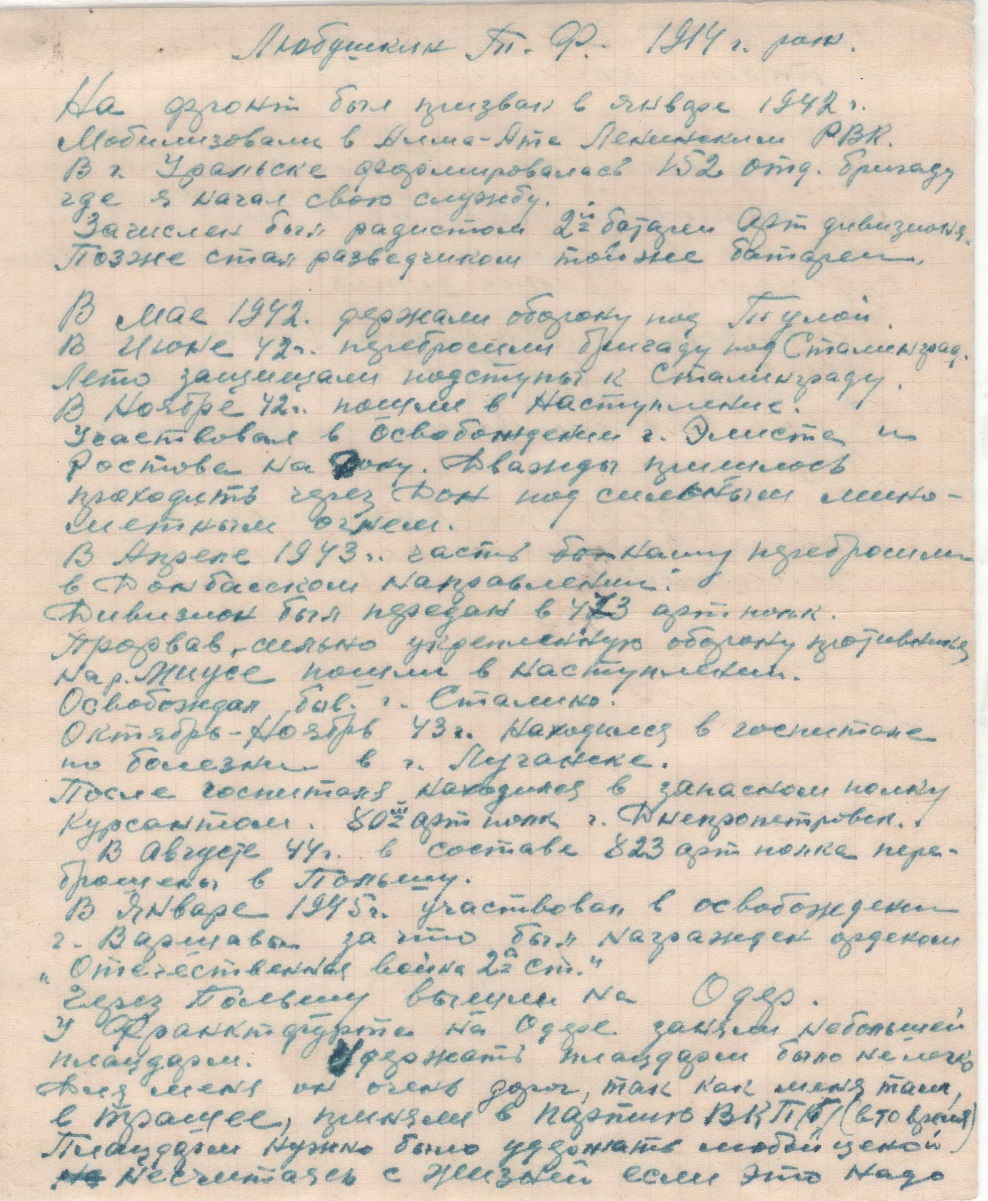 Любушкин Т. Ф. 1914 г. рож.
На фронт был призван в январе 1942 г.
Мобилизовали в Алма-Ата Ленинским РВК.
В г. Уральске формировалась 152 отд. бригаду
где я начал свою службу.
Зачислен был радистом 2й батареи Арт дивизиона.
Позже стал разведчиком той же батареи.
В Мае 1942. держали оборону под Тулой.
В Июне 42г. перебросили бригаду под Сталинград.
Лето защищали подступы к Сталинграду.
В Ноябре 42г. пошли в Наступление.
Участвовал в Освобождении г. Элиста и
Ростова на Дону. Дважды пришлось
проходить через Дон под сильным мино-
метным огнем.
В Апреле 1943г. часть нашу перебросили
в Донбасском направлении.
Дивизион был передан в 473 арт полк.
Прорвав сильно укрепленную оборону противника
на р. Миусе пошли в наступлении.
Освобождал быв. г. Сталино.
Октябрь-Ноябрь 43г. Находился в госпитале
по болезни в г. Луганске.
После госпиталя находился в запасном полку
Курсантом. 80й арт полк г. Днепропетровск.
В Августе 44г. в составе 823 арт полка пере-
брошены в Польшу.
В Январе 1945г. участвовал в освобождении
г. Варшавы за что был награжден орденом
„Отечественная война 2й ст."
Через Польшу вышли на Одер.
У Франкфурта на Одере заняли небольшой
плацдарм. Удержать плацдарм было нелегко
Для меня он очень дорог, так как меня там,
в траншее, приняли в партию ВКП/б/ (в то время)
Плацдарм нужно было удержать любой ценой
Несчитаясь с жизней если это надо